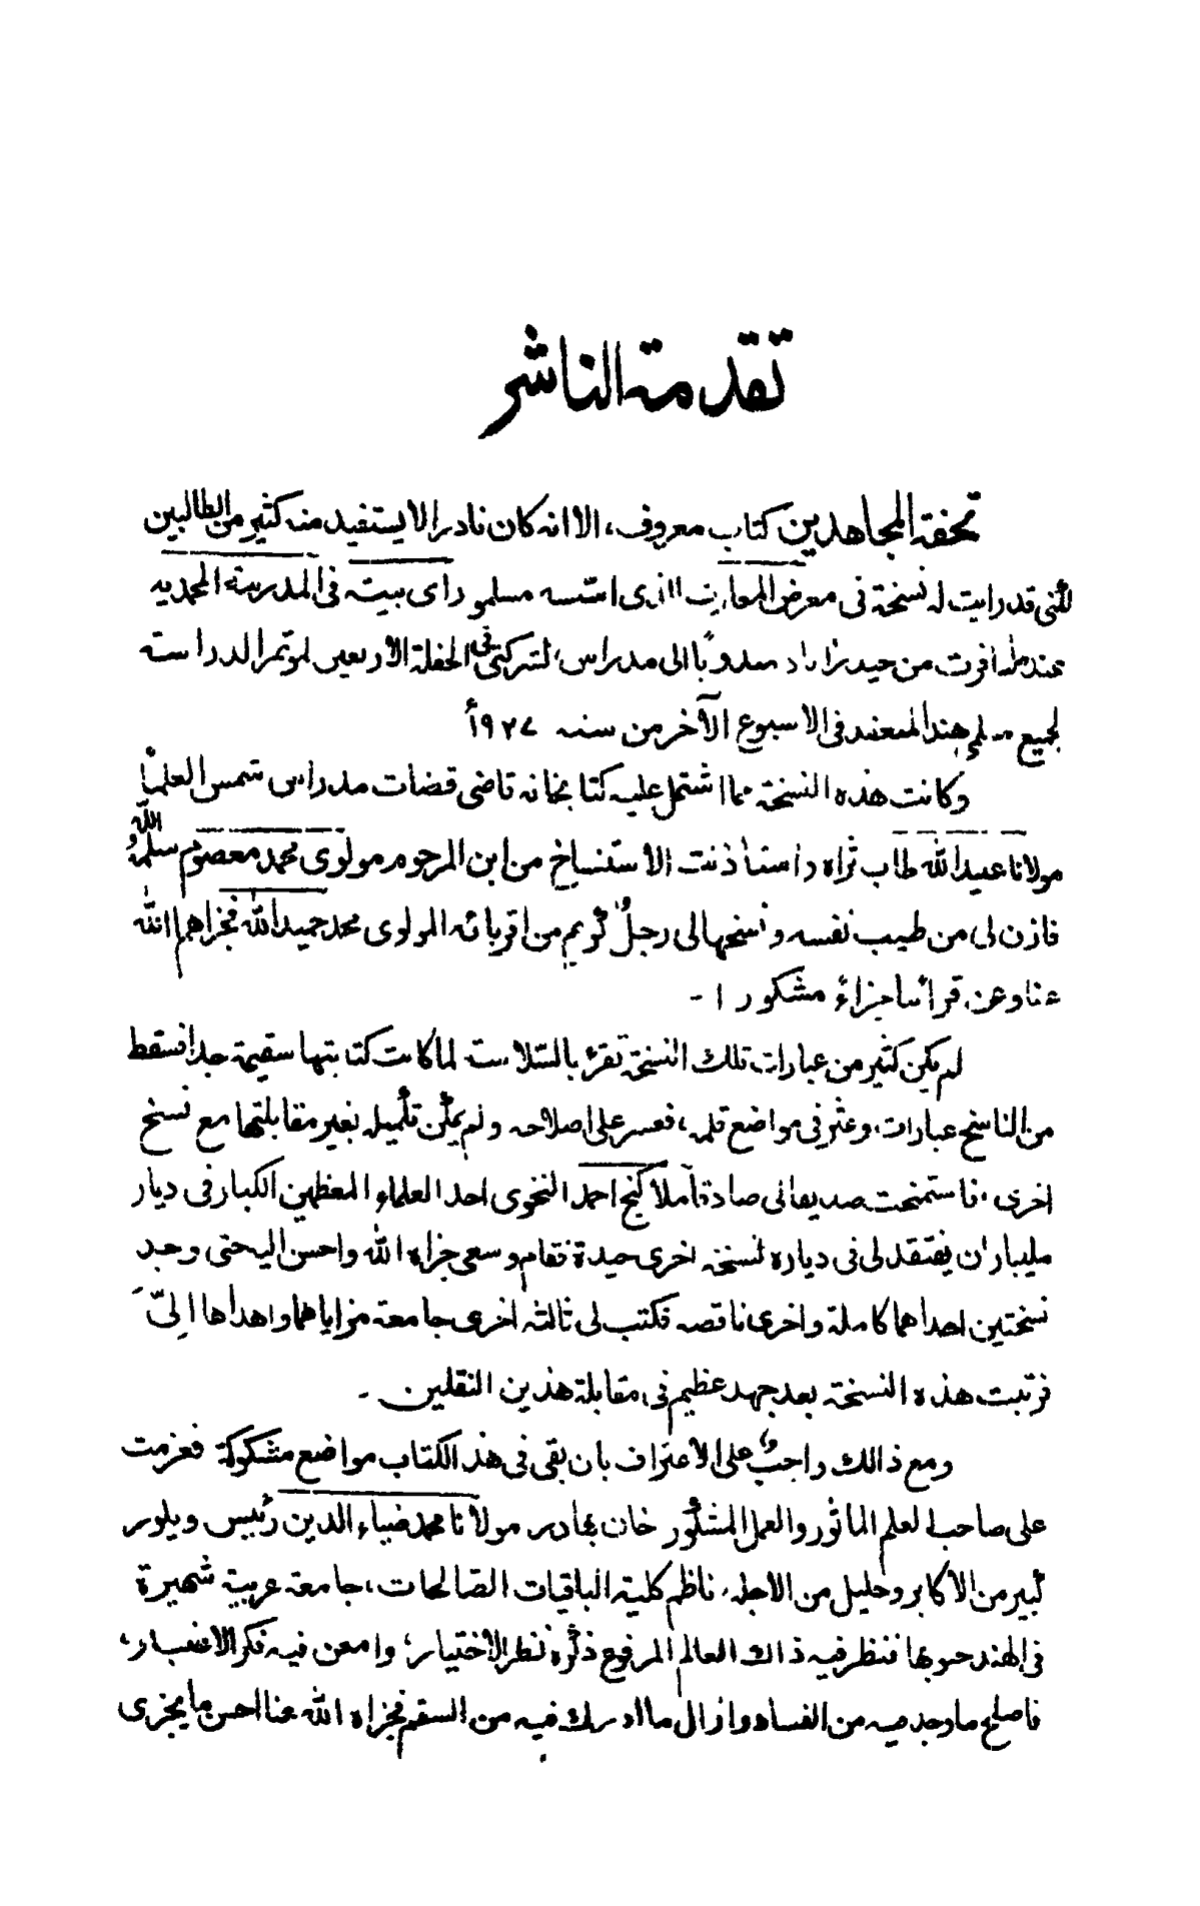 تقدمة الناشر
تحفة المجاهدين كتاب معروف، الا انه كان نادرا لا يستفيد منه كثير من الطالبين
لكنى قد رايت له نسخة فى معرض المعارف الذى اسّسه مسلمو داى بيته فى المدرسة المحمديه
عندما سافرت من حيدراباد مندوبًا الى مدراس، لشركتى فى الحفلة الاربعين لموتمر الدراسة
لجميع مسلمى هند المنعقد فى الاسبوع الآخر من سنه ١٩٢٧ء
وكانت هذه النسخة مما اشتمل عليه كتابخانه قاضى قضات مدراس شمس العلماء
مولانا عبيد الله طاب ثراه واستأذنت الاستنساخ من ابن المرحوم مولوى محمد معصوم سلمه الله
فاذن لى من طيب نفسه ونسخها لى رجلٌ كريم من اقربائه المولوى محمد حميد الله فجزاهما الله
عنا وعن قرائنا جزاءً مشكورا -
لم يكن كثير من عبارات تلك النسخة تقرء بالسّلاست لما كانت كتابتها سقيمة جدا فسقط
من الناسخ عبارات، وعثر فى مواضع قلمه، فعسر على اصلاحه ولم يمكن تكميله بغير مقابلتها مع نسخ
اخرى، فاستمنحت صديقا لى صادقا ملا كنج احمد النحوى احد العلماء المعظمين الكبار فى ديار
مليبار ان يفتقد لى فى دياره نسخة اخرى جيدة فقام وسعى جزاه الله واحسن اليه حتى وجد
نسختين احداهما كاملة واخرى ناقصه فكتب لى ثالثه اخرى جامعة مزاياهما واهداها اليّ
فرتبت هذه النسخة بعد جهد عظيم فى مقابلة هذين النقلين -
ومع ذالك واجبٌ على الاعتراف بان بقى فى هذ الكتاب مواضع مشكوكة فعزمت
على صاحب العلم الماثور والعمل المشكور خان بهادر مولانا محمد ضياء الدين رئيس ويلور
كبير من الاكابر وجليل من الاجله، ناظم كلية الباقيات الصّالحات، جامعة عربية شهيرة
فى الهند جنوبها فنظر فيه ذاك العالم المرفوع ذكره نظر الاختيار، وامعن فيه فكر الاعتبار،
فاصلح ما وجد فيه من الفساد وازال ما ادرك فيه من السقم فجزاه الله عنا احسن ما يجزى